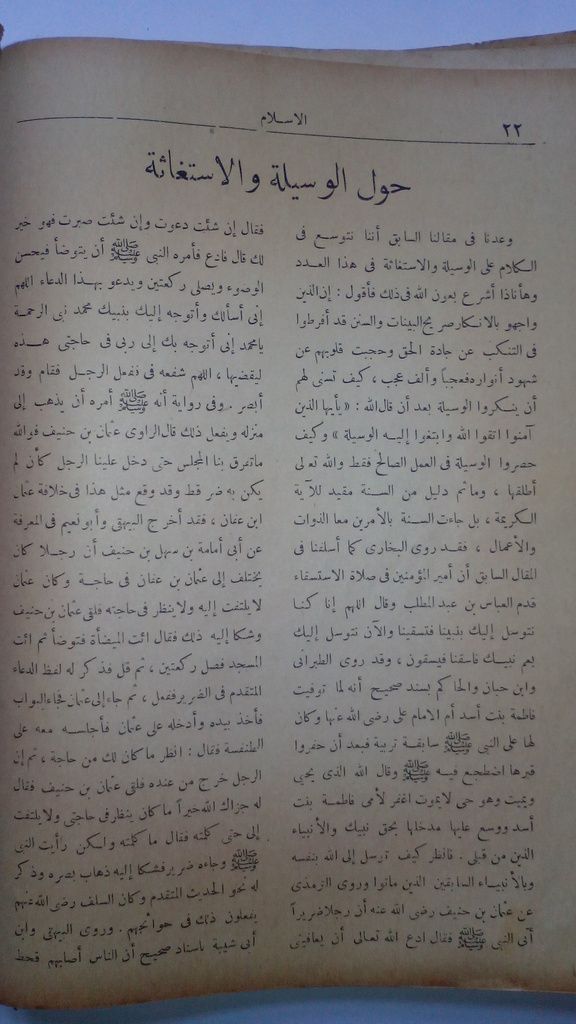 ٢٢
الاسلام
حول الوسيلة والاستغاثة
وعدنا فى مقالنا السابق أننا نتوسع فى
الكلام على الوسيلة والاستغاثة فى هذا العدد
وهأناذا أشرع بعون الله فى ذلك فأقول : إن الذين
واجهوا بالانكار صريح البينات والسنن قد أفرطوا
فى التنكب عن جادة الحق وحجبت قلوبهم عن
شهود أنواره فعجباً وألف عجب ، كيف تسنى لهم
أن ينكروا الوسيلة بعد أن قال الله : « يأيها الذين
آمنوا اتقوا الله وابتغوا إليه الوسيلة » وكيف
حصروا الوسيلة فى العمل الصالح فقط والله تعالى
أطلقها ، وماثم دليل من السنة مقيد للآية
الكريمة ، بل جاءت السنة بالأمرين معا الذوات
والأعمال ، فقد روى البخارى كما أسلفنا فى
المقال السابق أن أمير المؤمنين فى صلاة الاستسقاء
قدم العباس بن عبد المطلب وقال اللهم إنا كنا
نتوسل إليك بنبينا فتسقينا والآن نتوسل إليك
بعم نبيك فاسقنا فيسقون ، وقد روى الطبرانى
وابن حبان والحاكم بسند صحيح أنه لما توفيت
فاطمة بنت أسد أم الامام على رضى الله عنها وكان
لها على النبى ﷺ سابقة تربية فبعد أن حفروا
قبرها اضطجع فيه ﷺ وقال الله الذى يحيى
ويميت وهو حى لايموت اغفر لأمى فاطمة بنت
أسد ووسع عليها مدخلها بحق نبيك والأنبياء
الذين من قبلى . فانظر كيف توسل إلى الله بنفسه
وبالأنبياء السابقين الذين ماتوا وروى الترمذى
عن عثمان بن حنيف رضى الله عنه أن رجلا ضريراً
أتى النبى ﷺ فقال ادع الله تعالى أن يعافينى
فقال إن شئت دعوت وإن شئت صبرت فهو خير
لك قال فادع فأمره النبى ﷺ أن يتوضأ فيحسن
الوضوء ويصلى ركعتين ويدعو بهذا الدعاء اللهم
إنى أسألك وأتوجه إليك بنبيك محمد نبى الرحمة
يامحمد إنى أتوجه بك إلى ربى فى حاجتى هذه
ليقضيها ، اللهم شفعه فى ففعل الرجل فقام وقد
أبصر . وفى رواية أنه ﷺ أمره أن يذهب إلى
منزله ويفعل ذلك قال الراوى عثمان بن حنيف فوالله
ماتفرق بنا المجلس حتى دخل علينا الرجل كأن لم
يكن به ضر قط وقد وقع مثل هذا فى خلافة عثمان
ابن عفان ، فقد أخرج البيهقى وأبو نعيم فى المعرفة
عن أبى أمامة بن سهل بن حنيف أن رجلا كان
يختلف إلى عثمان بن عفان فى حاجة وكان عثمان
لايلتفت إليه ولاينظر فى حاجته فلقى عثمان بن حنيف
وشكا إليه ذلك فقال ائت الميضأة فتوضأ ثم ائت
المسجد فصل ركعتين ، ثم قل فذكر له لفظ الدعاء
المتقدم فى الضرير ففعل ، ثم جاء إلى عثمان فجاء البواب
فأخذ بيده وأدخله على عثمان فأجلسه معه على
الطنفسة فقال : انظر ما كان لك من حاجة ، ثم إن
الرجل خرج من عنده فلقى عثمان بن حنيف فقال
له جزاك الله خيراً ما كان ينظر فى حاجتى ولايلتفت
إلى حتى كلمته فقال ما كلمته ولكن رأيت النبى
ﷺ وجاءه ضرير فشكا إليه ذهاب بصره وذكر
له نحو الحديث المتقدم وكان السلف رضى الله عنهم
يفعلون ذلك فى حوائجهم . وروى البيهقى وابن
أبى شيبة باسناد صحيح أن الناس أصابهم قحط